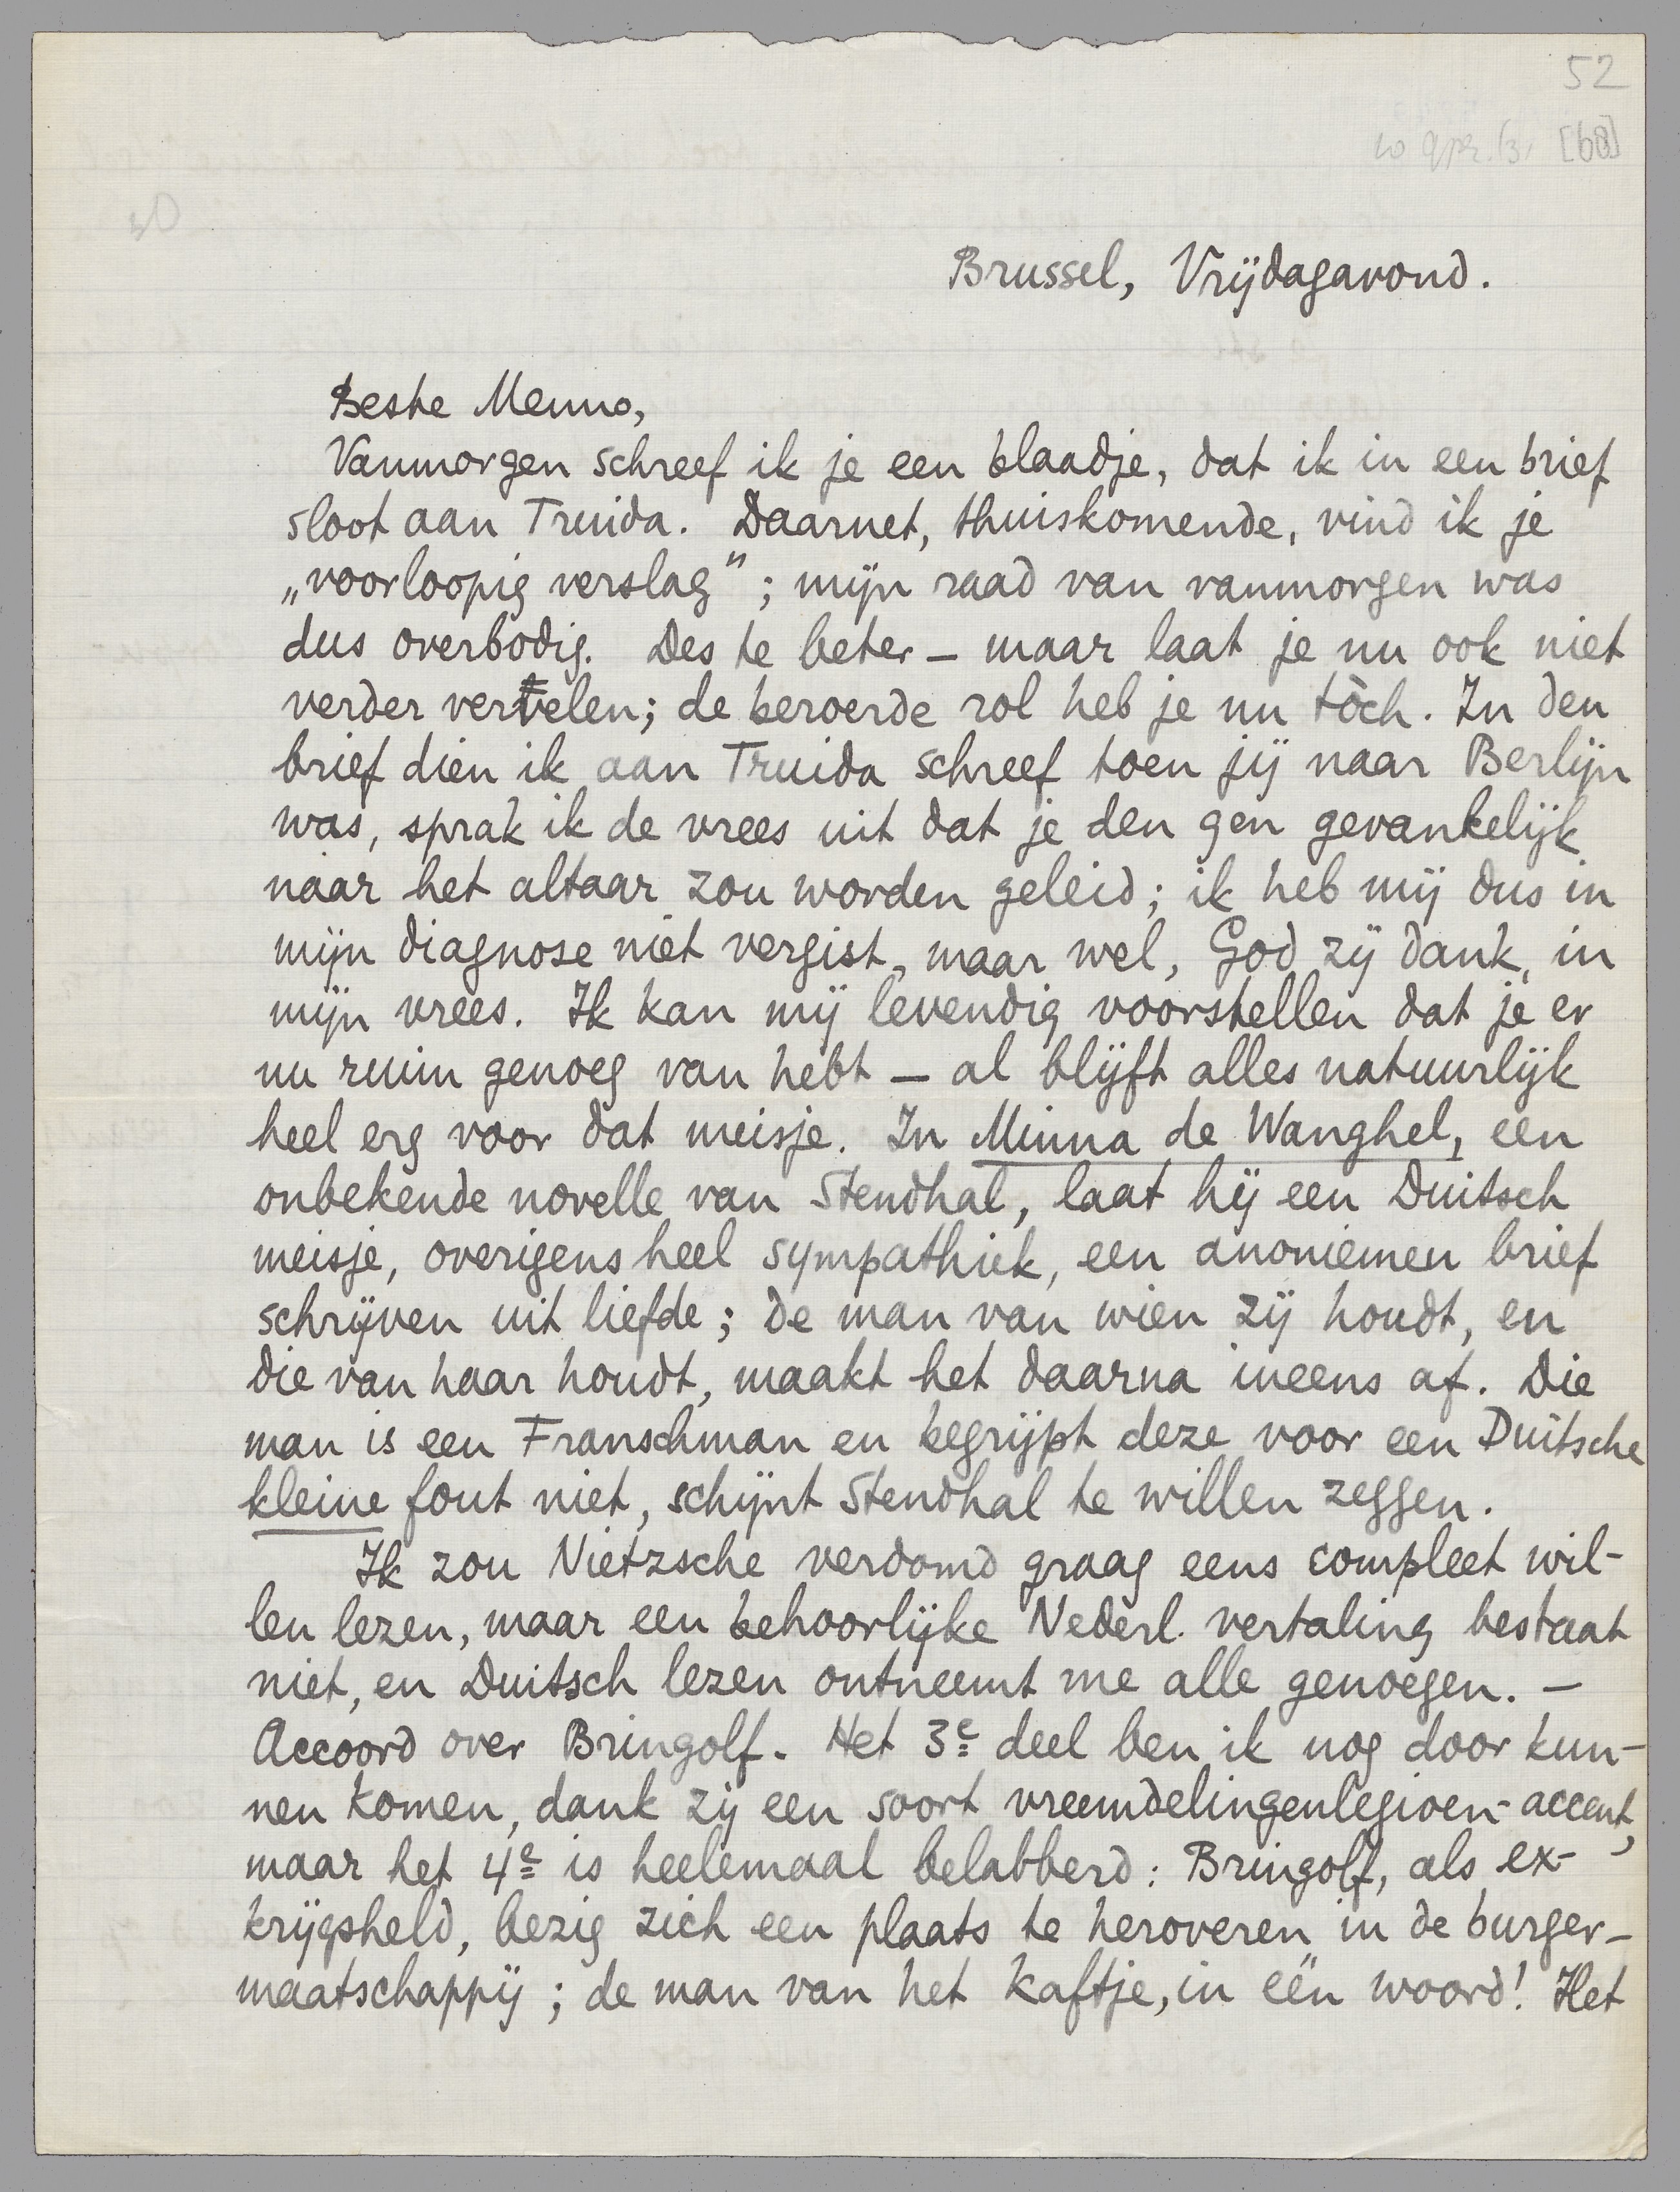 52
Brussel, Vrijdagavond.
Beste Menno,
Vanmorgen schreef ik je een blaadje, dat ik in een brief
sloot aan Truida. Daarnet, thuiskomende, vind ik je
„voorloopig verslag”; mijn raad van vanmorgen was
dus overbodig. Des te beter — maar laat je nu ook niet
verder vervelen; de beroerde rol heb je nu tòch. In den
brief dien ik aan Truida schreef toen jij naar Berlijn
was, sprak ik de vrees uit dat je den gen gevankelijk
naar het altaar zou worden geleid; ik heb mij dus in
mijn diagnose niet vergist, maar wel, God zij dank, in
mijn vrees. Ik kan mij levendig voorstellen dat je er
nu ruim genoeg van hebt — al blijft alles natuurlijk
heel erg voor dat meisje. In Minna de Wanghel, een
onbekende novelle van Stendhal, laat hij een Duitsch
meisje, overigens heel sympathiek, een anoniemen brief
schrijven uit liefde; de man van wien zij houdt, en
die van haar houdt, maakt het daarna ineens af. Die
man is een Franschman en begrijpt deze voor een Duitsche
kleine fout niet, schijnt Stendhal te willen zeggen.
Ik zou Nietzsche verdomd graag eens compleet wil-
len lezen, maar een behoorlijke Nederl. vertaling bestaat
niet, en Duitsch lezen ontneemt me alle genoegen. —
Accoord over Bringolf. Het 3e deel ben ik nog door kun-
nen komen, dank zij een soort vreemdelingenlegioen-accent,
maar het 4e is heelemaal belabberd: Bringolf, als ex-
krijgsheld, bezig zich een plaats te heroveren in de burger-
maatschappij; de man van het kaftje, in één woord! Het